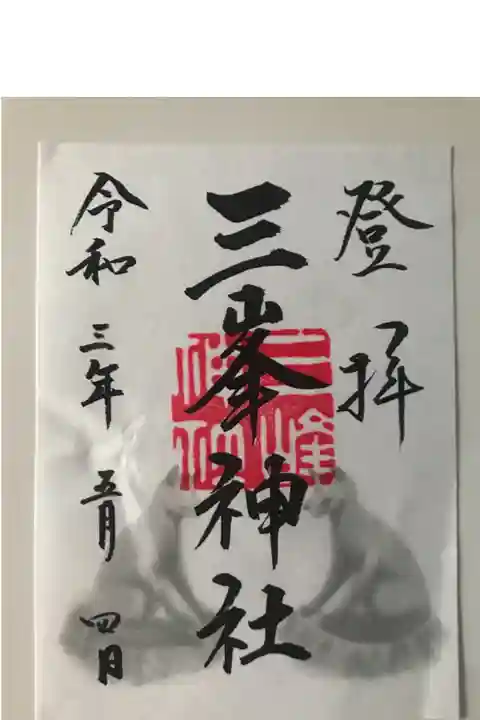 登拝
三峯神社
令和三年五月四日